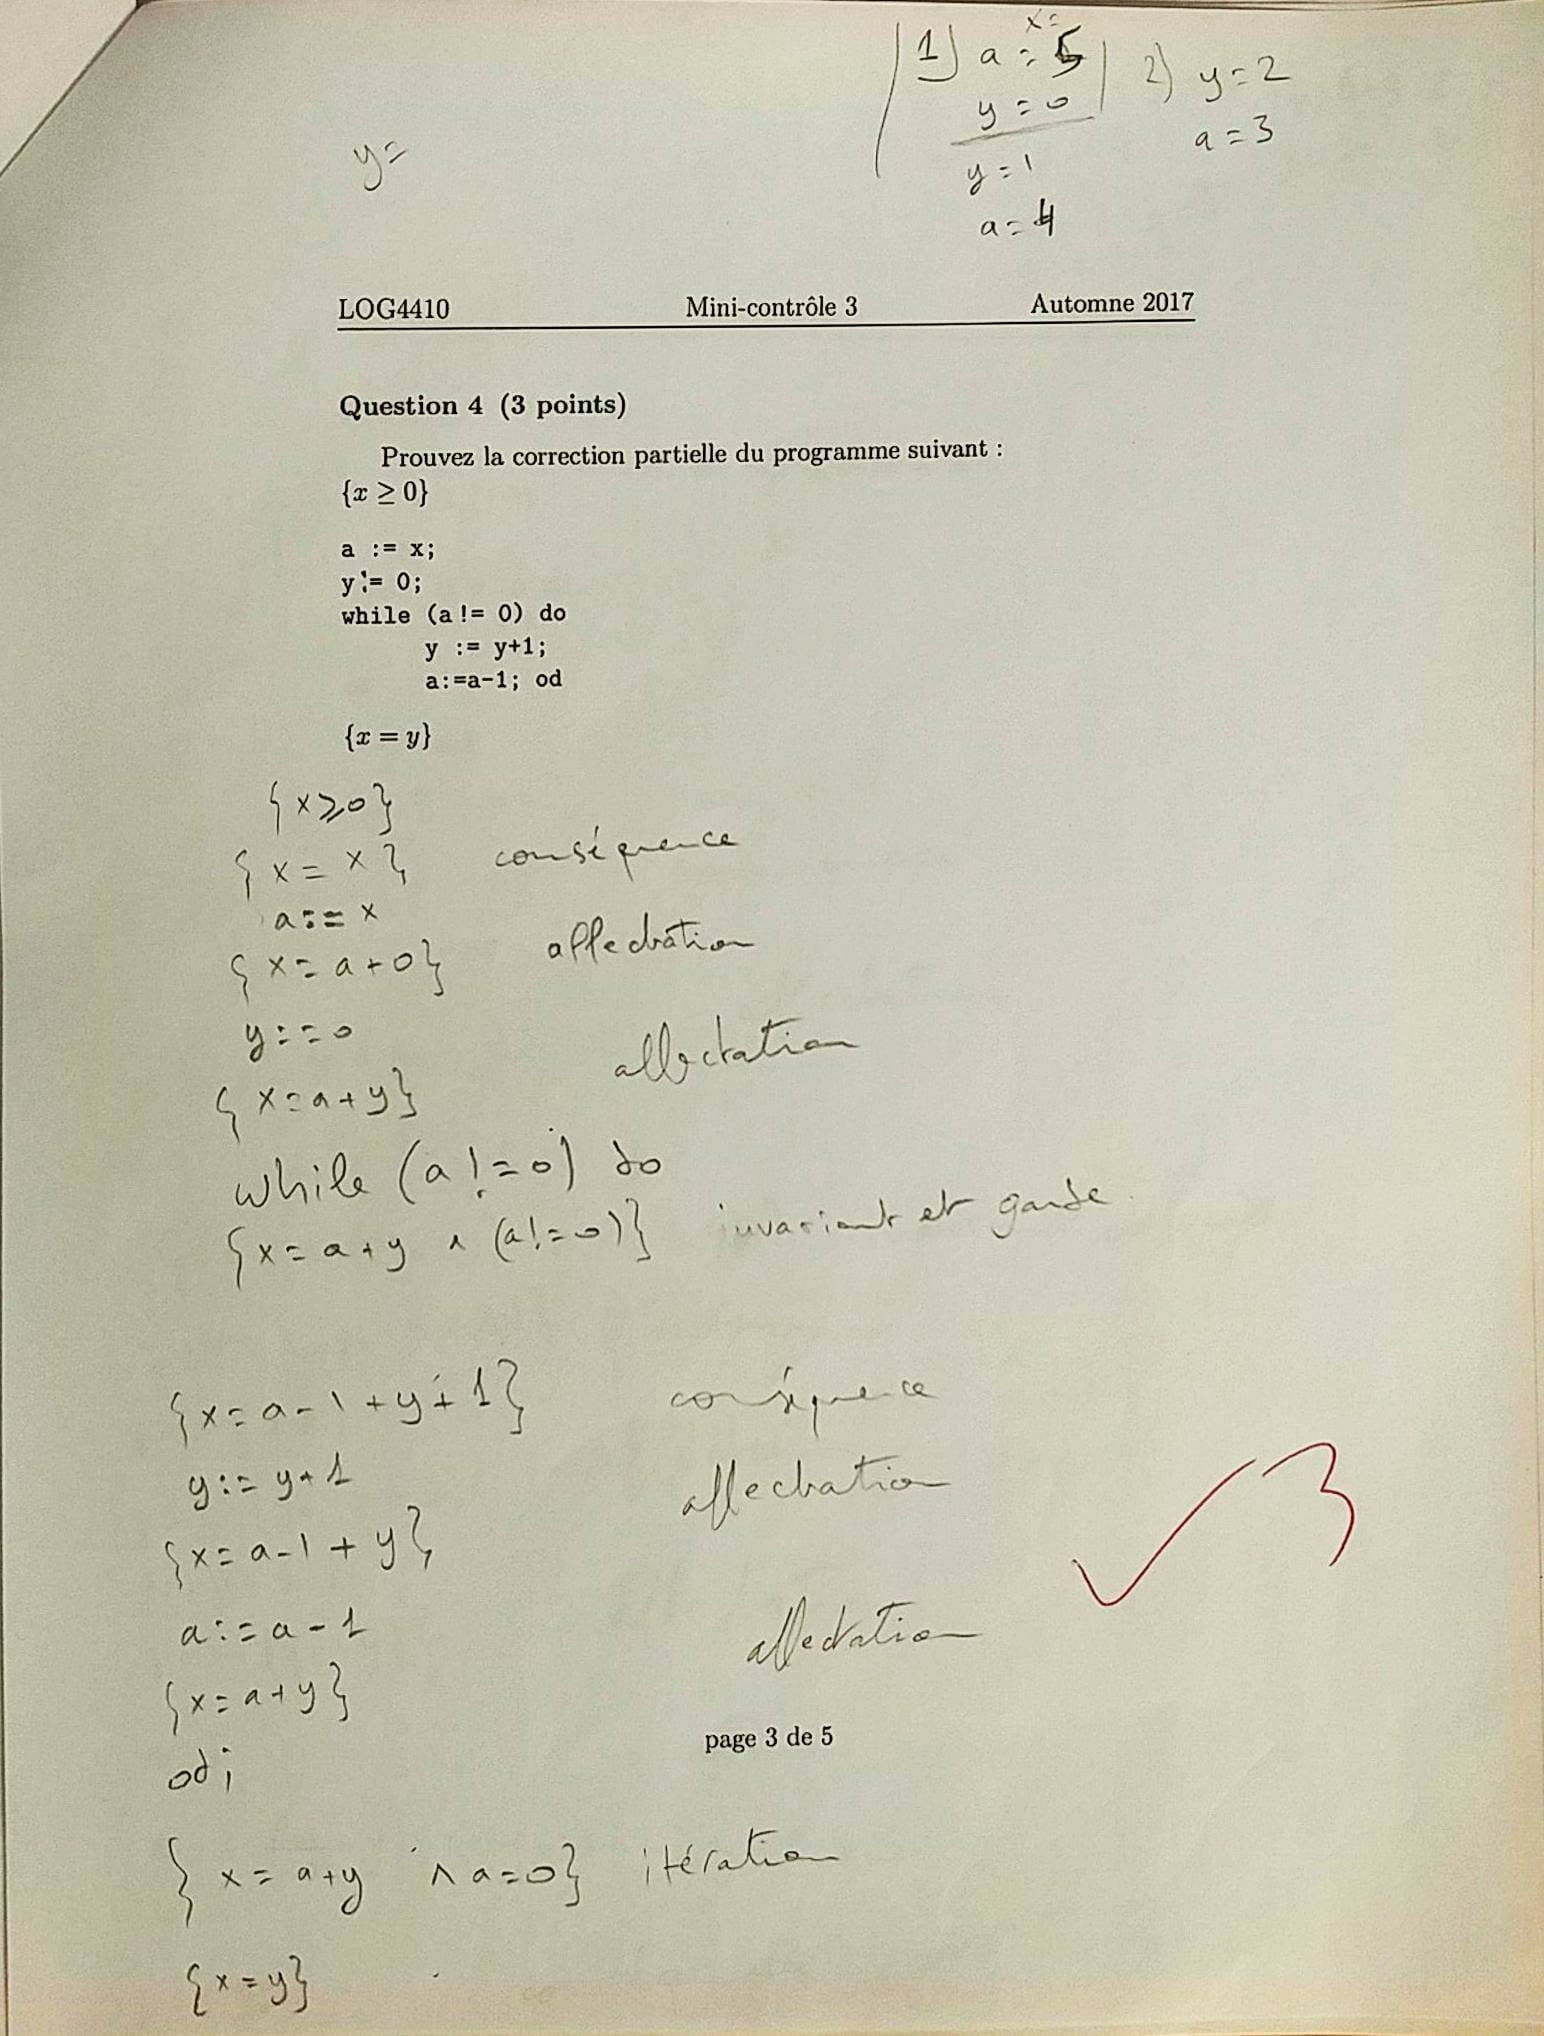 x=
1) a = 5
y = 0
y = 1
a = 4
2) y = 2
a = 3
y=
LOG4410 Mini-contrôle 3 Automne 2017
Question 4 (3 points)
Prouvez la correction partielle du programme suivant :
{x ≥ 0}
a := x;
y:= 0;
while (a != 0) do
y := y+1;
a:=a-1; od
{x = y}
{x⩾0}
{x = x} conséquence
a:= x
{x = a + 0} affectation
y:=0
{x=a+y} affectation
while (a != 0) do
{x = a + y ∧ (a != 0)} invariant et garde.
{x = a - 1 + y + 1} conséquence
y := y+1
{x = a-1 + y} affectation
a := a - 1
{x = a+y} affectation
od;
{x = a+y ∧ a=0} itération
{x = y}
✓ 3
page 3 de 5